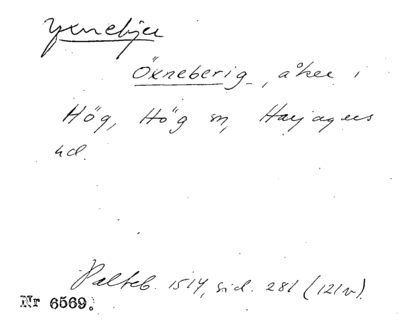 yxnebjer
Öxneberig, åker i
Hög, Hög sn, Harjagers
hd.
Palteb. 1514, sid. 281 (121v).
Nr 6569.